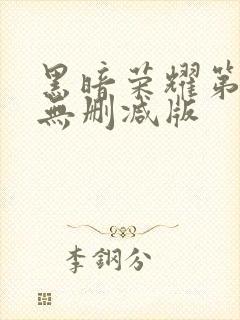 黑暗荣耀第
無删减版
李鋼分